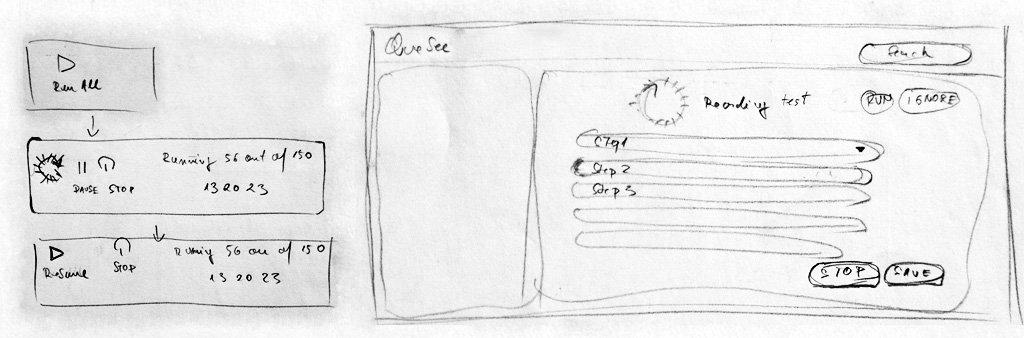 Run All
PAUSE STOP
Running 56 out of 150
13 20 23
Resume
STOP
Running 56 out of 150
13 20 23
QuaSee
Search
Recording test
RUN
IGNORE
Step 1
Step 2
Step 3
STOP
SAVE